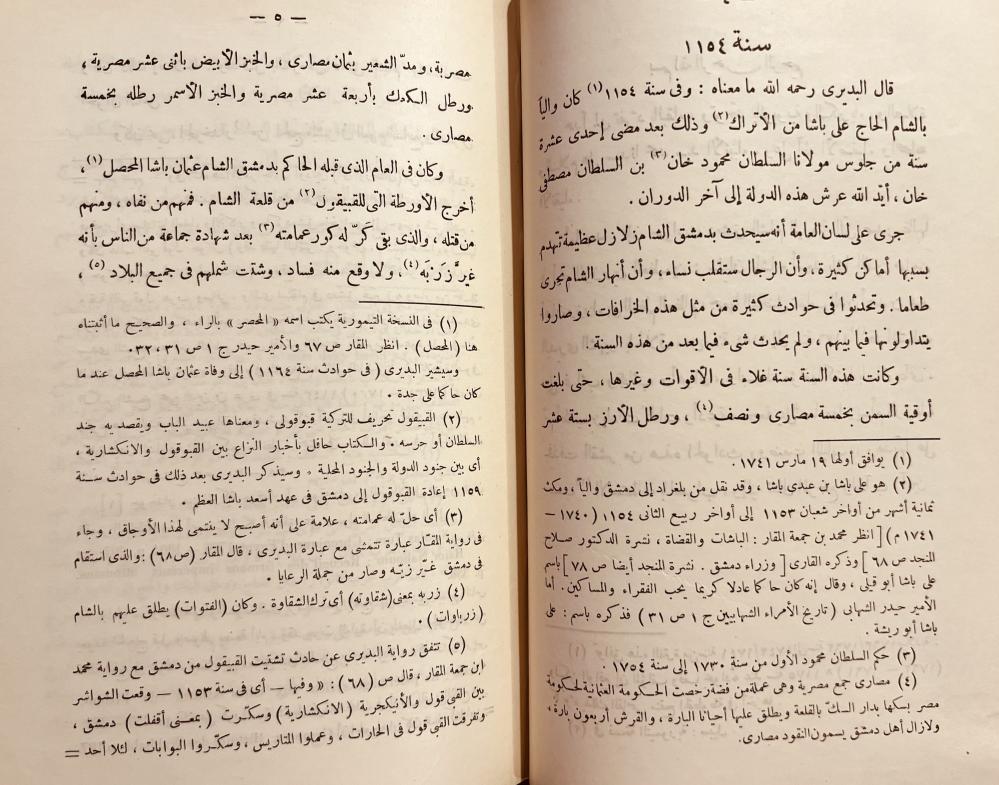 سنة ١١٥٤
قال البديرى رحمه الله ما معناه : وفى سنة ١١٥٤ (١) كان والياً
بالشام الحاج على باشا من الأتراك (٢) وذلك بعد مضى إحدى عشرة
سنة من جلوس مولانا السلطان محمود خان (٣) بن السلطان مصطفى
خان ، أيّد الله عرش هذه الدولة إلى آخر الدوران .
جرى على لسان العامة أنه سيحدث بدمشق الشام زلازل عظيمة تتهدم
بسببها أماكن كثيرة ، وأن الرجال ستقلب نساء ، وأن أنهار الشام تجرى
طعاما . وتحدثوا فى حوادث كثيرة من مثل هذه الخرافات ، وصاروا
يتداولونها فيما بينهم ، ولم يحدث شىء فيما بعد من هذه السنة .
وكانت هذه السنة سنة غلاء فى الأقوات وغيرها ، حتى بلغت
أوقية السمن بخمسة مصارى ونصف (٤) ، ورطل الأرز بستة عشر
(١) يوافق أولها ١٩ مارس ١٧٤١ .
(٢) هو على باشا بن عبدي باشا ، وقد نقل من بلغراد إلى دمشق والياً ، ومكث
ثمانية أشهر من أواخر شعبان ١١٥٣ إلى أواخر ربيع الثانى ١١٥٤ (١٧٤٠ –
١٧٤١ م) [ انظر محمد بن جمعة المقار : الباشات والقضاة ، نشرة الدكتور صلاح
المنجد ص ٦٨ ] وذكره القارى [ وزراء دمشق . نشرة المنجد أيضا ص ٧٨ ] باسم
على باشا أبو قيلى ، وقال إنه كان حاكما عادلا كريما يحب الفقراء والمساكين . أما
الأمير حيدر الشهابى ( تاريخ الأمراء الشهابيين ج ١ ص ٣١ ) فذكره باسم : على
باشا أبو ريشة .
(٣) حكم السلطان محمود الأول من سنة ١٧٣٠ إلى سنة ١٧٥٤ .
(٤) مصارى جمع مصرية وهى عملة من فضة رخصت الحكومة العثمانية لحكومة
مصر بسكها بدار السكّ بالقلعة ويطلق عليها أحيانا البارة ، والقرش أربعون بارة ،
ولا زال أهل دمشق يسمون النقود مصارى .
— ٥ —
مصرية ، ومدّ الشعير بثمان مصارى ، والخبز الأبيض باثنى عشر مصرية ،
ورطل الكعك بأربعة عشر مصرية والخبز الأسمر رطله بخمسة
مصارى .
وكان فى العام الذى قبله الحاكم بدمشق الشام عثمان باشا المحصل (١) ،
أخرج الأورطة التى للقبيقول (٢) من قلعة الشام . فمنهم من نفاه ، ومنهم
من قتله ، والذى بقى كَرّ له كور عمامته (٣) بعد شهادة جماعة من الناس بأنه
غيَّر زَرْبَه (٤) ، ولا وقع منه فساد ، وشتت شملهم فى جميع البلاد (٥) ،
(١) فى النسخة التيمورية يكتب اسمه « المحصر » بالراء ، والصحيح ما أثبتناه
هنا ( المحصل ) . انظر المقار ص ٦٧ والأمير حيدر ج ١ ص ٣١ ، ٣٢ .
وسيشير البديرى ( فى حوادث سنة ١١٦٤ ) إلى وفاة عثمان باشا المحصل عند ما
كان حاكما على جدة .
(٢) القبيقول تحريف للتركية قبوقولى ، ومعناها عبيد الباب ويقصد به جند
السلطان أو حرسه . والكتاب حافل بأخبار النزاع بين القبوقول والانكشارية ،
أى بين جنود الدولة والجنود المحلية . وسيذكر البديرى بعد ذلك فى حوادث سنة
١١٥٩ إعادة القبوقول إلى دمشق فى عهد أسعد باشا العظم .
(٣) أى حلّ له عمامته ، علامة على أنه أصبح لا ينتمى لهذا الأوجاق ، وجاء
فى رواية المقار عبارة تتمشى مع عبارة البديرى ، قال المقار (ص ٦٨) : والذى استقام
فى دمشق غيّر زيّه وصار من جملة الرعايا .
(٤) زربه بمعنى (شقاوته) أى ترك الشقاوة . وكان (الفتوات) يطلق عليهم بالشام
( زرباوات ) .
(٥) تتفق رواية البديرى عن حادث تشتيت القبيقول من دمشق مع رواية محمد
ابن جمعة المقار ، قال ص (٦٨) : « وفيها — أى فى سنة ١١٥٣ — وقعت الشواشر
بين القبى قول والأنيكجرية (الانكشارية) وسكّرت ( بمعنى أقفلت ) دمشق ،
وتفرقت القبى قول فى الحارات ، وعملوا المتاريس ، وسكّروا البوابات ، لئلا أحد =